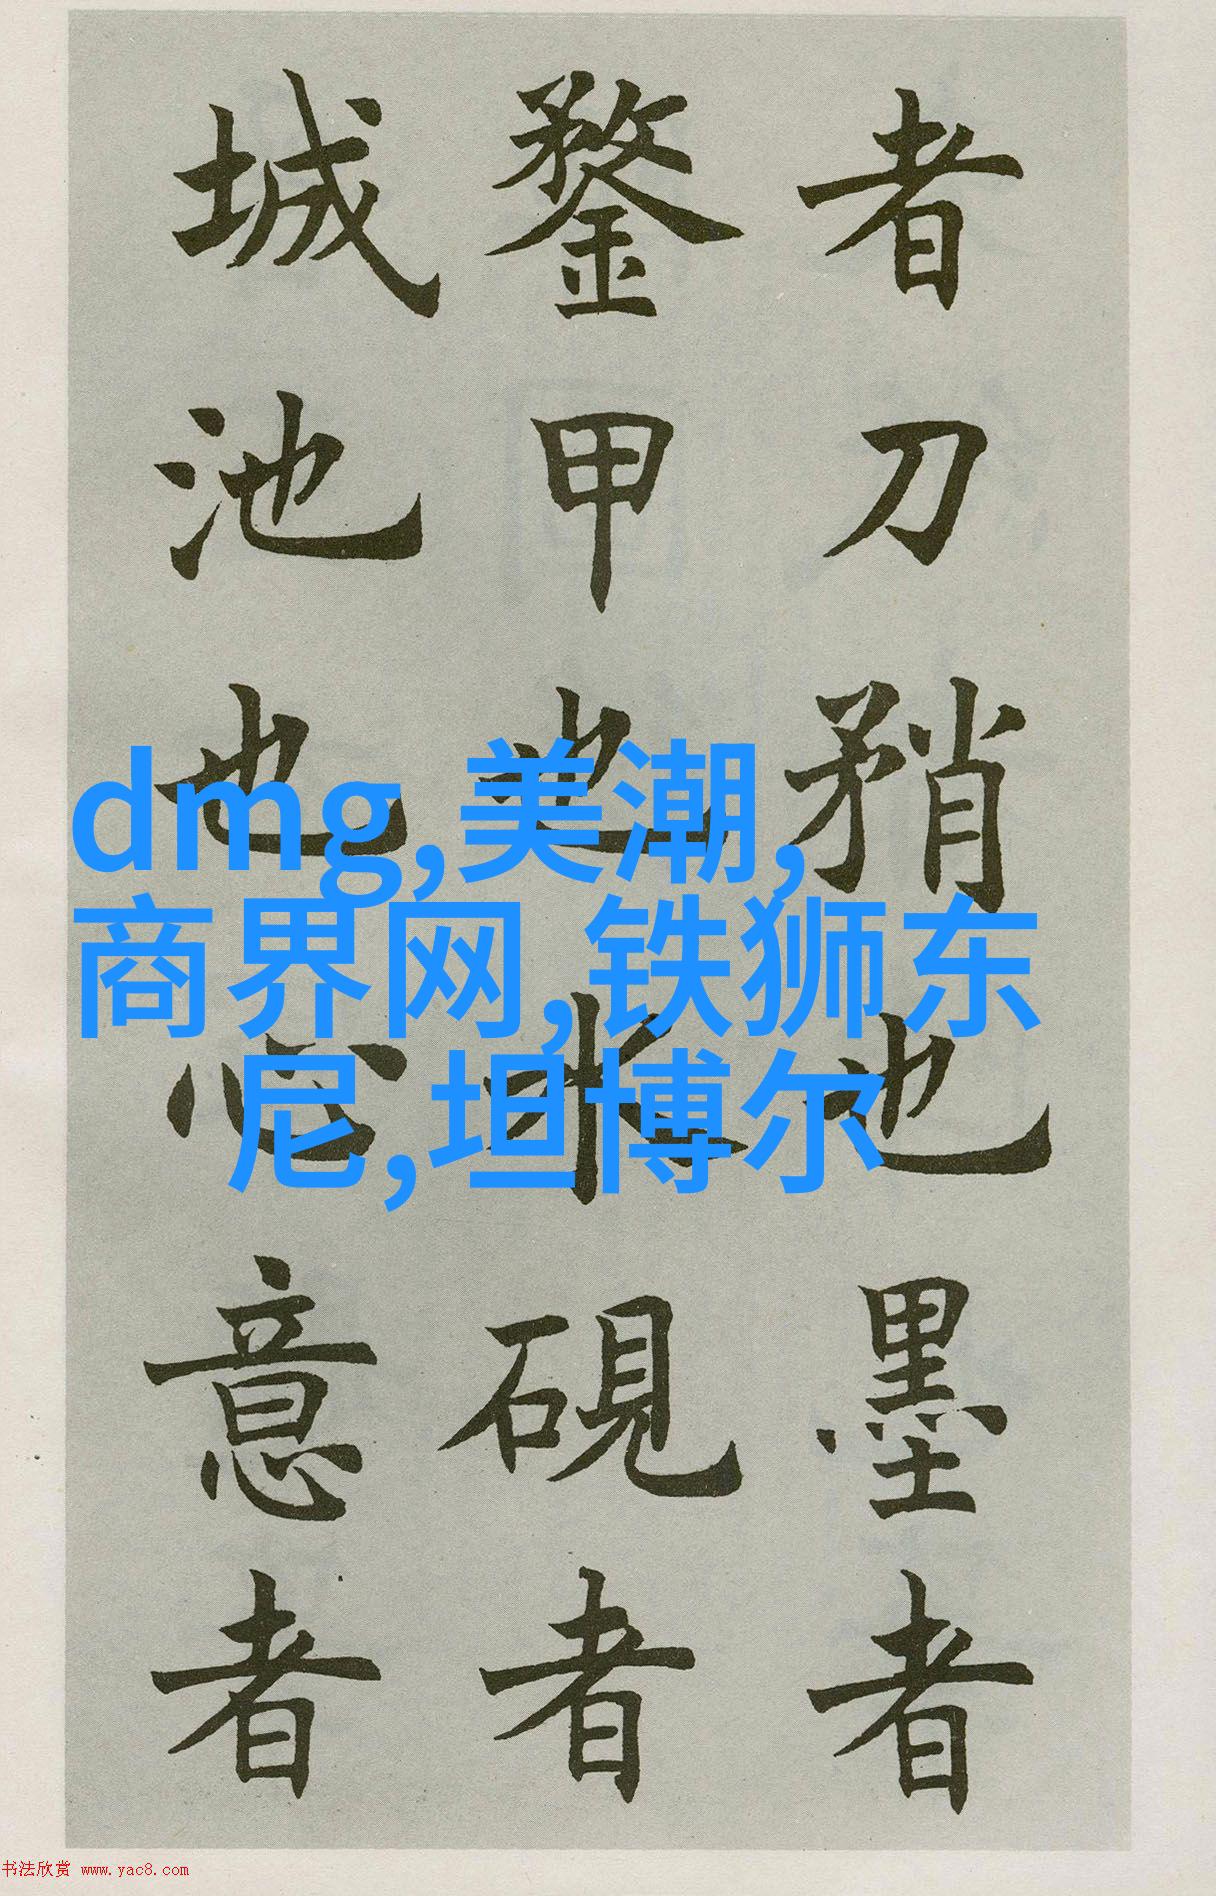 者刀矟也墨者
鍪甲也水硯者
城池也心意者
dmg,美潮,
商界网,铁狮东
尼,坦博尔
书法欣赏 www.yac8.com